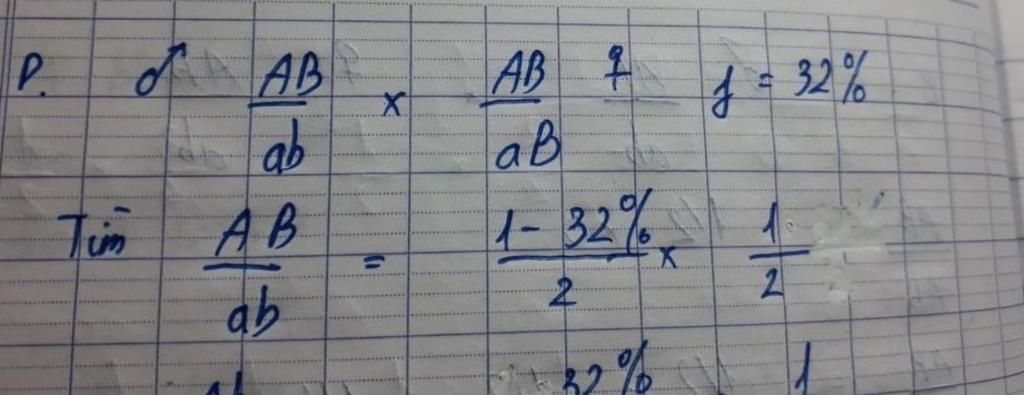 P. ♂ AB/ab x AB/aB ♀ f = 32%
Tìm AB/ab = (1 - 32%)/2 x 1/2
32% 1